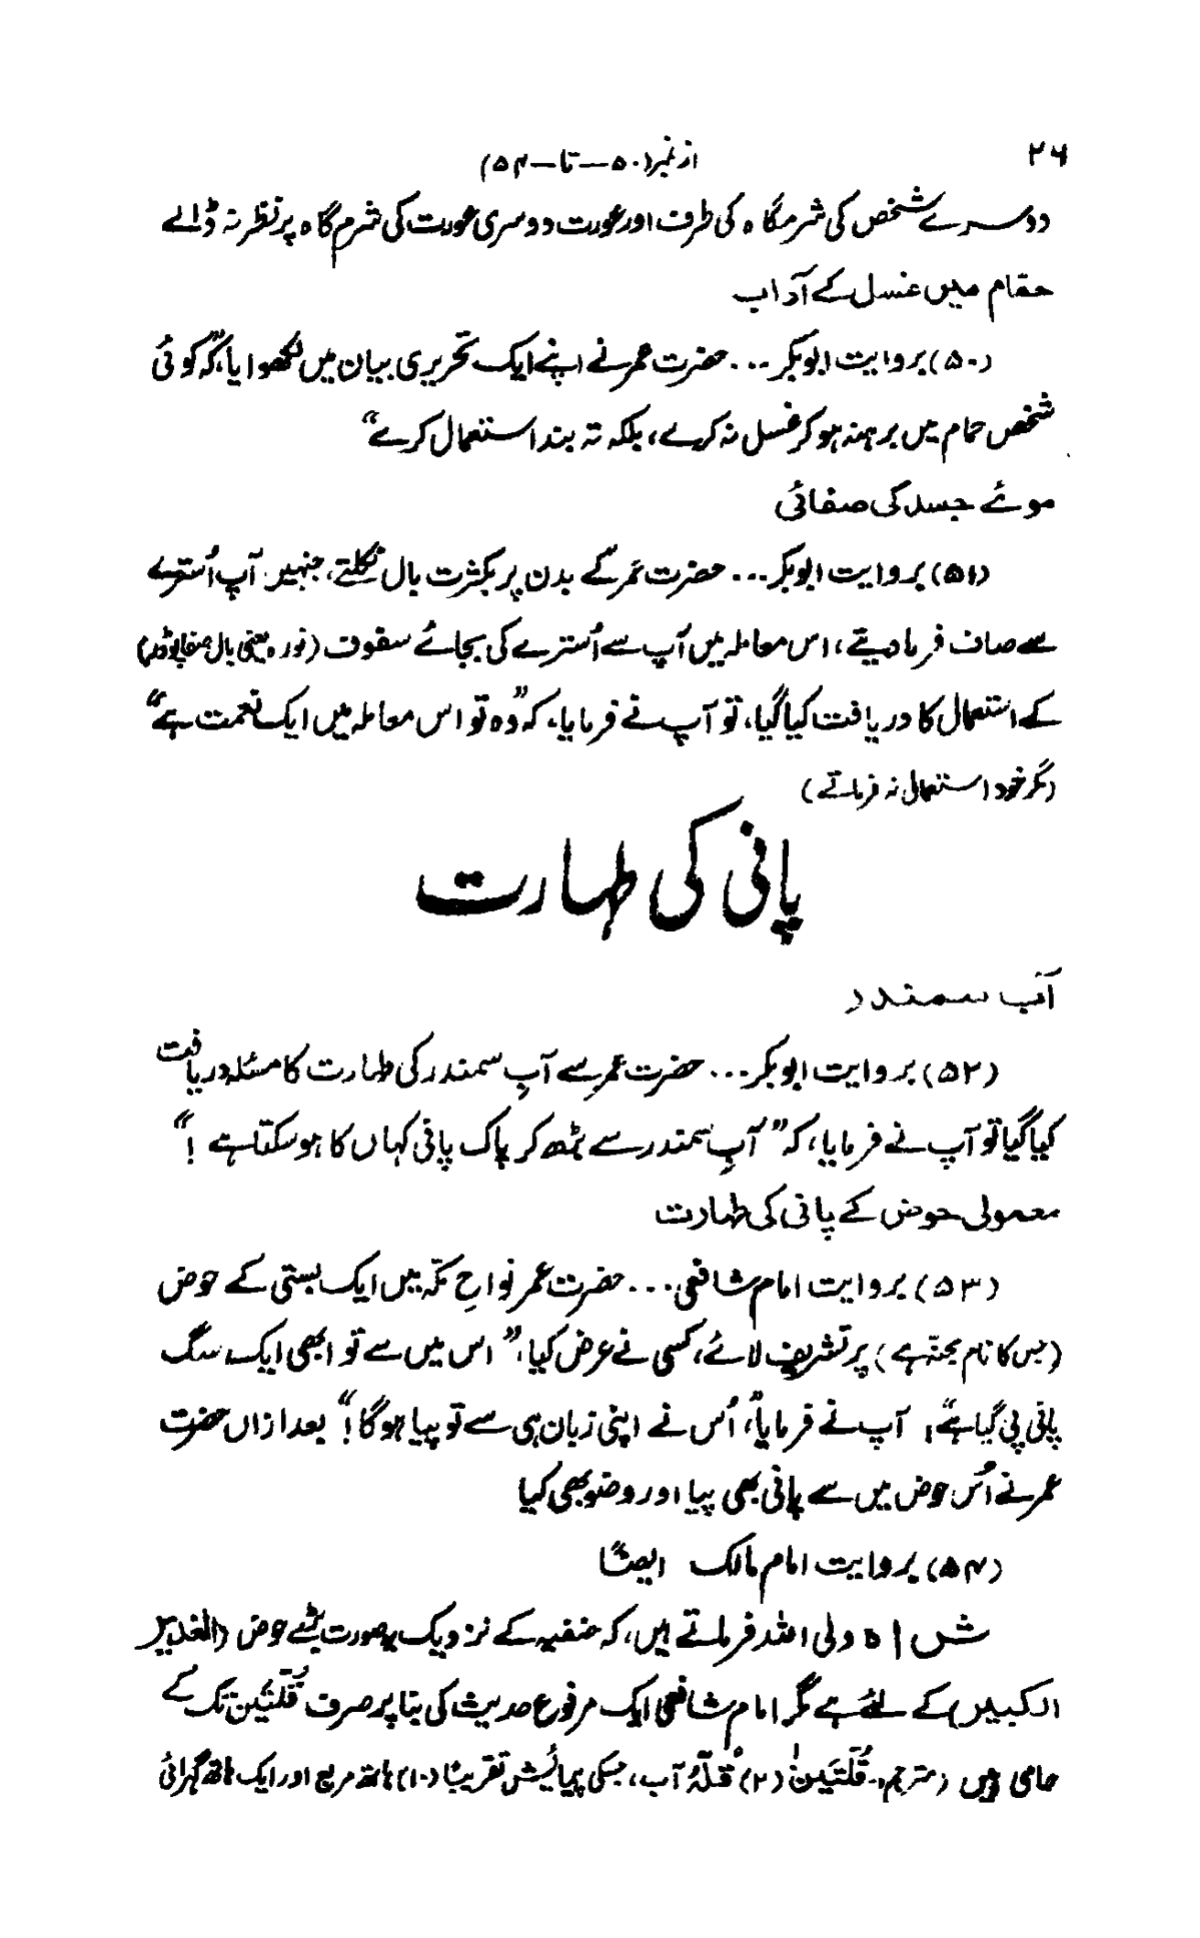 ۲۶
از نمبر (۵۰—تا—۵۴)
دوسرے شخص کی شرمگاہ کی طرف اور عورت دوسری عورت کی شرم گاہ پر نظر نہ ڈالے
حمّام میں غسل کے آداب
(۵۰) بروایت ابوبکر ... حضرت عمر نے اپنے ایک تحریری بیان میں لکھوایا، کہ ”کوئی
شخص حمام میں برہنہ ہو کر غسل نہ کرے، بلکہ تہ بند استعمال کرے“
موئے جسد کی صفائی
(۵۱) بروایت ابوبکر ... حضرت عمر کے بدن پر بکثرت بال نکلتے، جنہیں آپ اُسترے
سے صاف فرما دیتے، اس معاملہ میں آپ سے اُسترے کی بجائے سفوف (نورہ یعنی بال صفا پوڈر)
کے استعمال کا دریافت کیا گیا، تو آپ نے فرمایا، کہ ”وہ تو اس معاملہ میں ایک نعمت ہے“
(مگر خود استعمال نہ فرماتے)
پانی کی طہارت
آب سمندر
(۵۲) بروایت ابوبکر ... حضرت عمر سے آبِ سمندر کی طہارت کا مسئلہ دریافت
کیا گیا تو آپ نے فرمایا، کہ ”آبِ سمندر سے بڑھ کر پاک پانی کہاں کا ہو سکتا ہے !“
معمولی حوض کے پانی کی طہارت
(۵۳) بروایت امام شافعی ... حضرت عمر نواحِ مکّہ میں ایک بستی کے حوض
(جس کا نام مجنّہ ہے) پر تشریف لائے، کسی نے عرض کیا، ”اس میں سے تو ابھی ایک سگ
پانی پی گیا ہے“! آپ نے فرمایا، ”اُس نے اپنی زبان ہی سے تو پیا ہوگا!“ بعد ازاں حضرت
عمر نے اُس حوض میں سے پانی بھی پیا اور وضو بھی کیا
(۵۴) بروایت امام مالک ایضًا
شاہ ولی اللہ فرماتے ہیں، کہ حنفیہ کے نزدیک یہ صورت بڑے حوض (الغدیر
الکبیر) کے لئے ہے مگر امام شافعی ایک مرفوع حدیث کی بنا پر صرف قُلّتَین تک کے
حامی ہیں (مترجم:- قُلّتَین (۲) قُلّہُ آب، جسکی پیمائش تقریبًا (۱۰) ہاتھ مربع اور ایک ہاتھ گہرائی